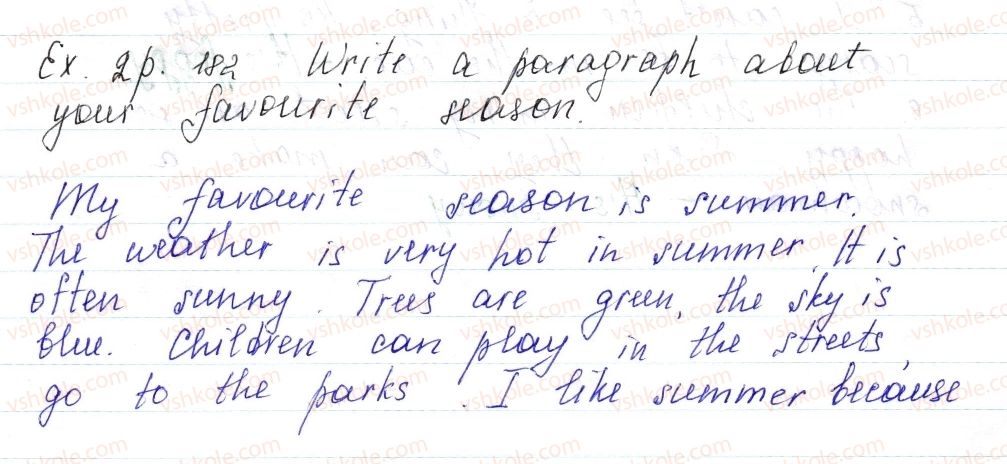 Ex. 2 p. 182 Write a paragraph about
your favourite season.
My favourite season is summer.
The weather is very hot in summer. It is
often sunny. Trees are green, the sky is
blue. Children can play in the streets,
go to the parks. I like summer because